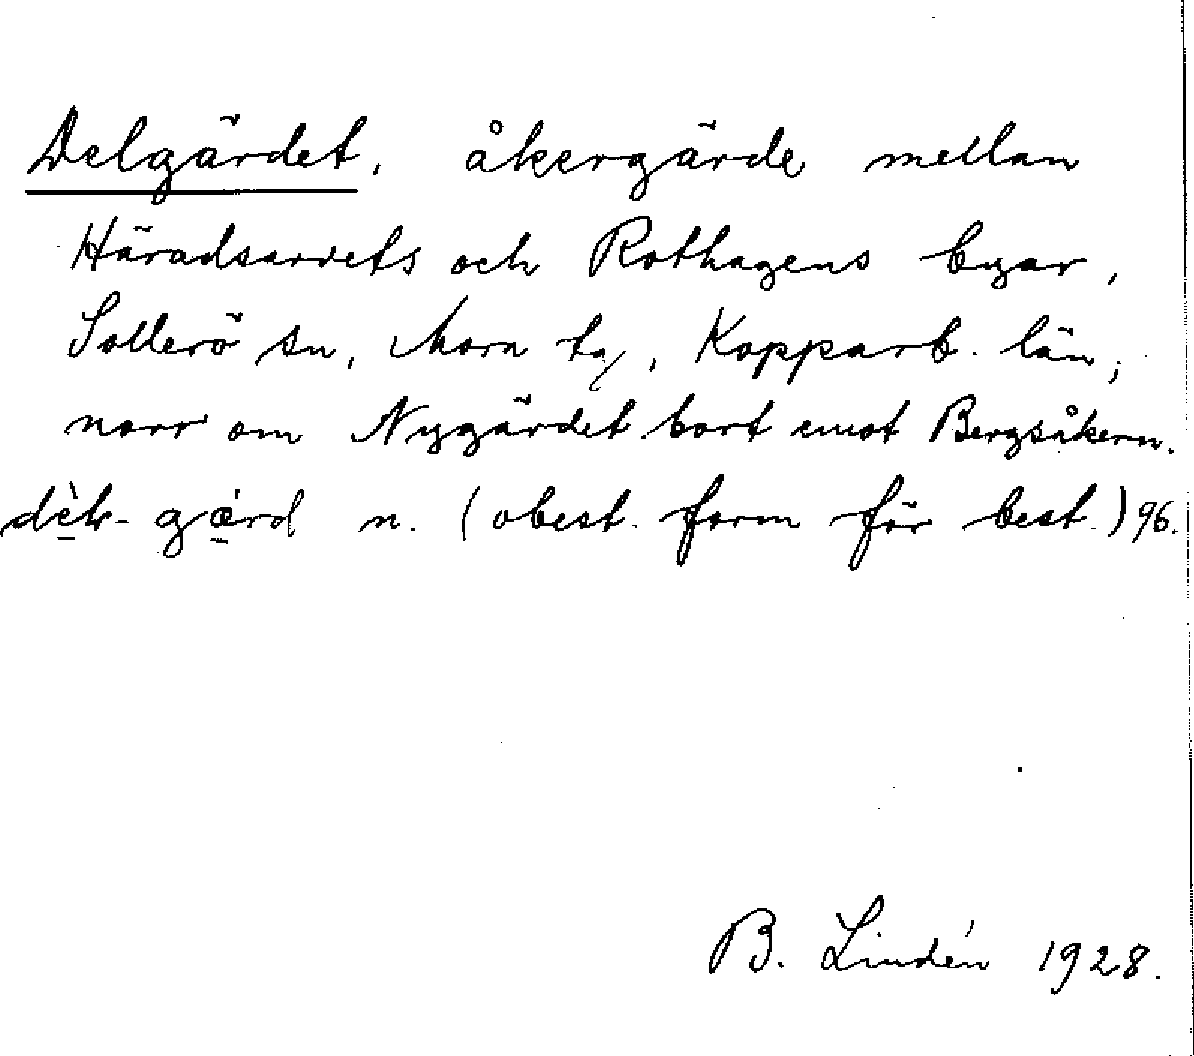 Delgärdet, åkergärde mellan
Häradsarvets och Rothagens byar,
Sollerö sn, Mora tg, Kopparb. län;
norr om Nygärdet bort emot Bergsåkern.
gærd n. (obest. form för best.) 96.
B. Lindén 1928.